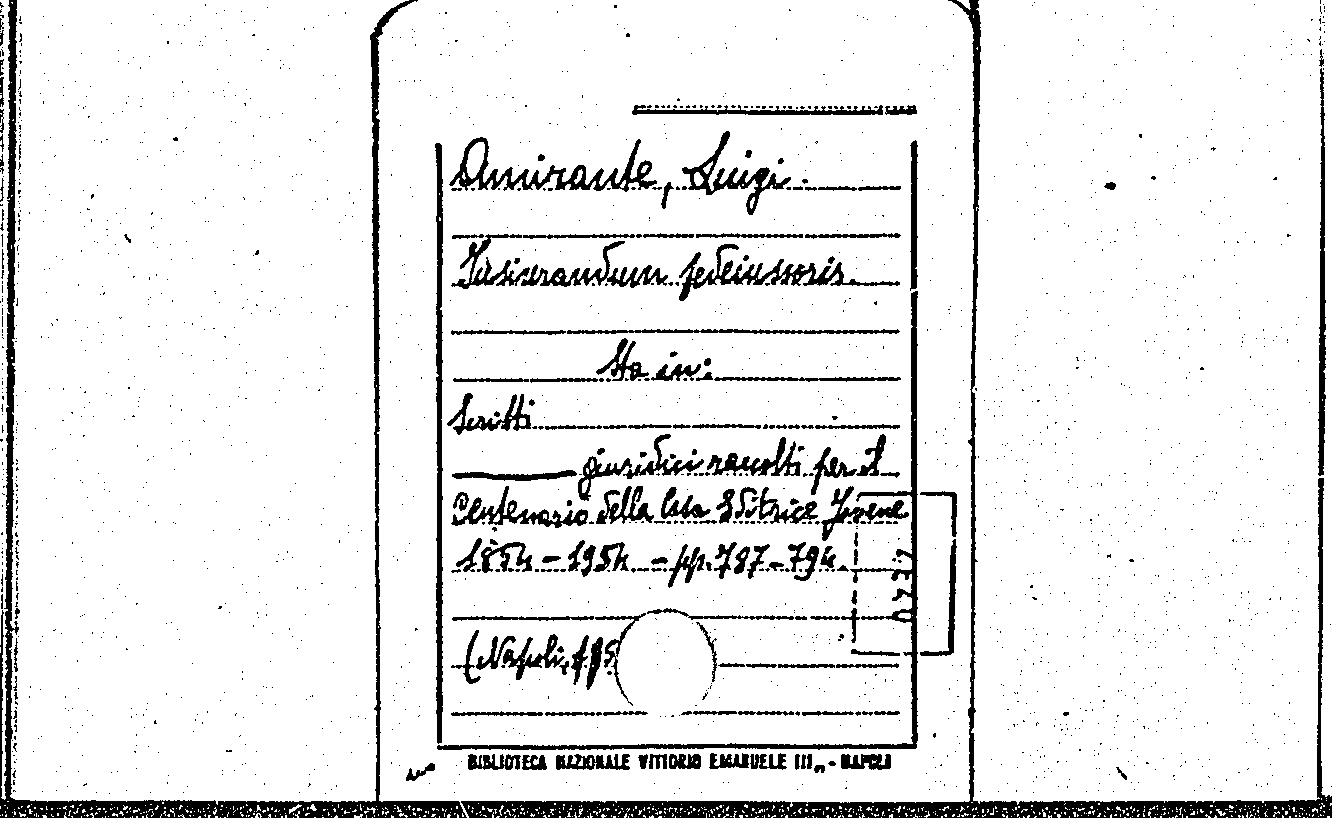 Amirante, Luigi.
Jusiurandum fedeiussoris.
Sta in:
Scritti
giuridici raccolti per il
Centenario della Casa Editrice Jovene
1854 - 1954 - pp. 787-794.
(Napoli, 195
BIBLIOTECA NAZIONALE VITTORIO EMANUELE III„ - NAPOLI